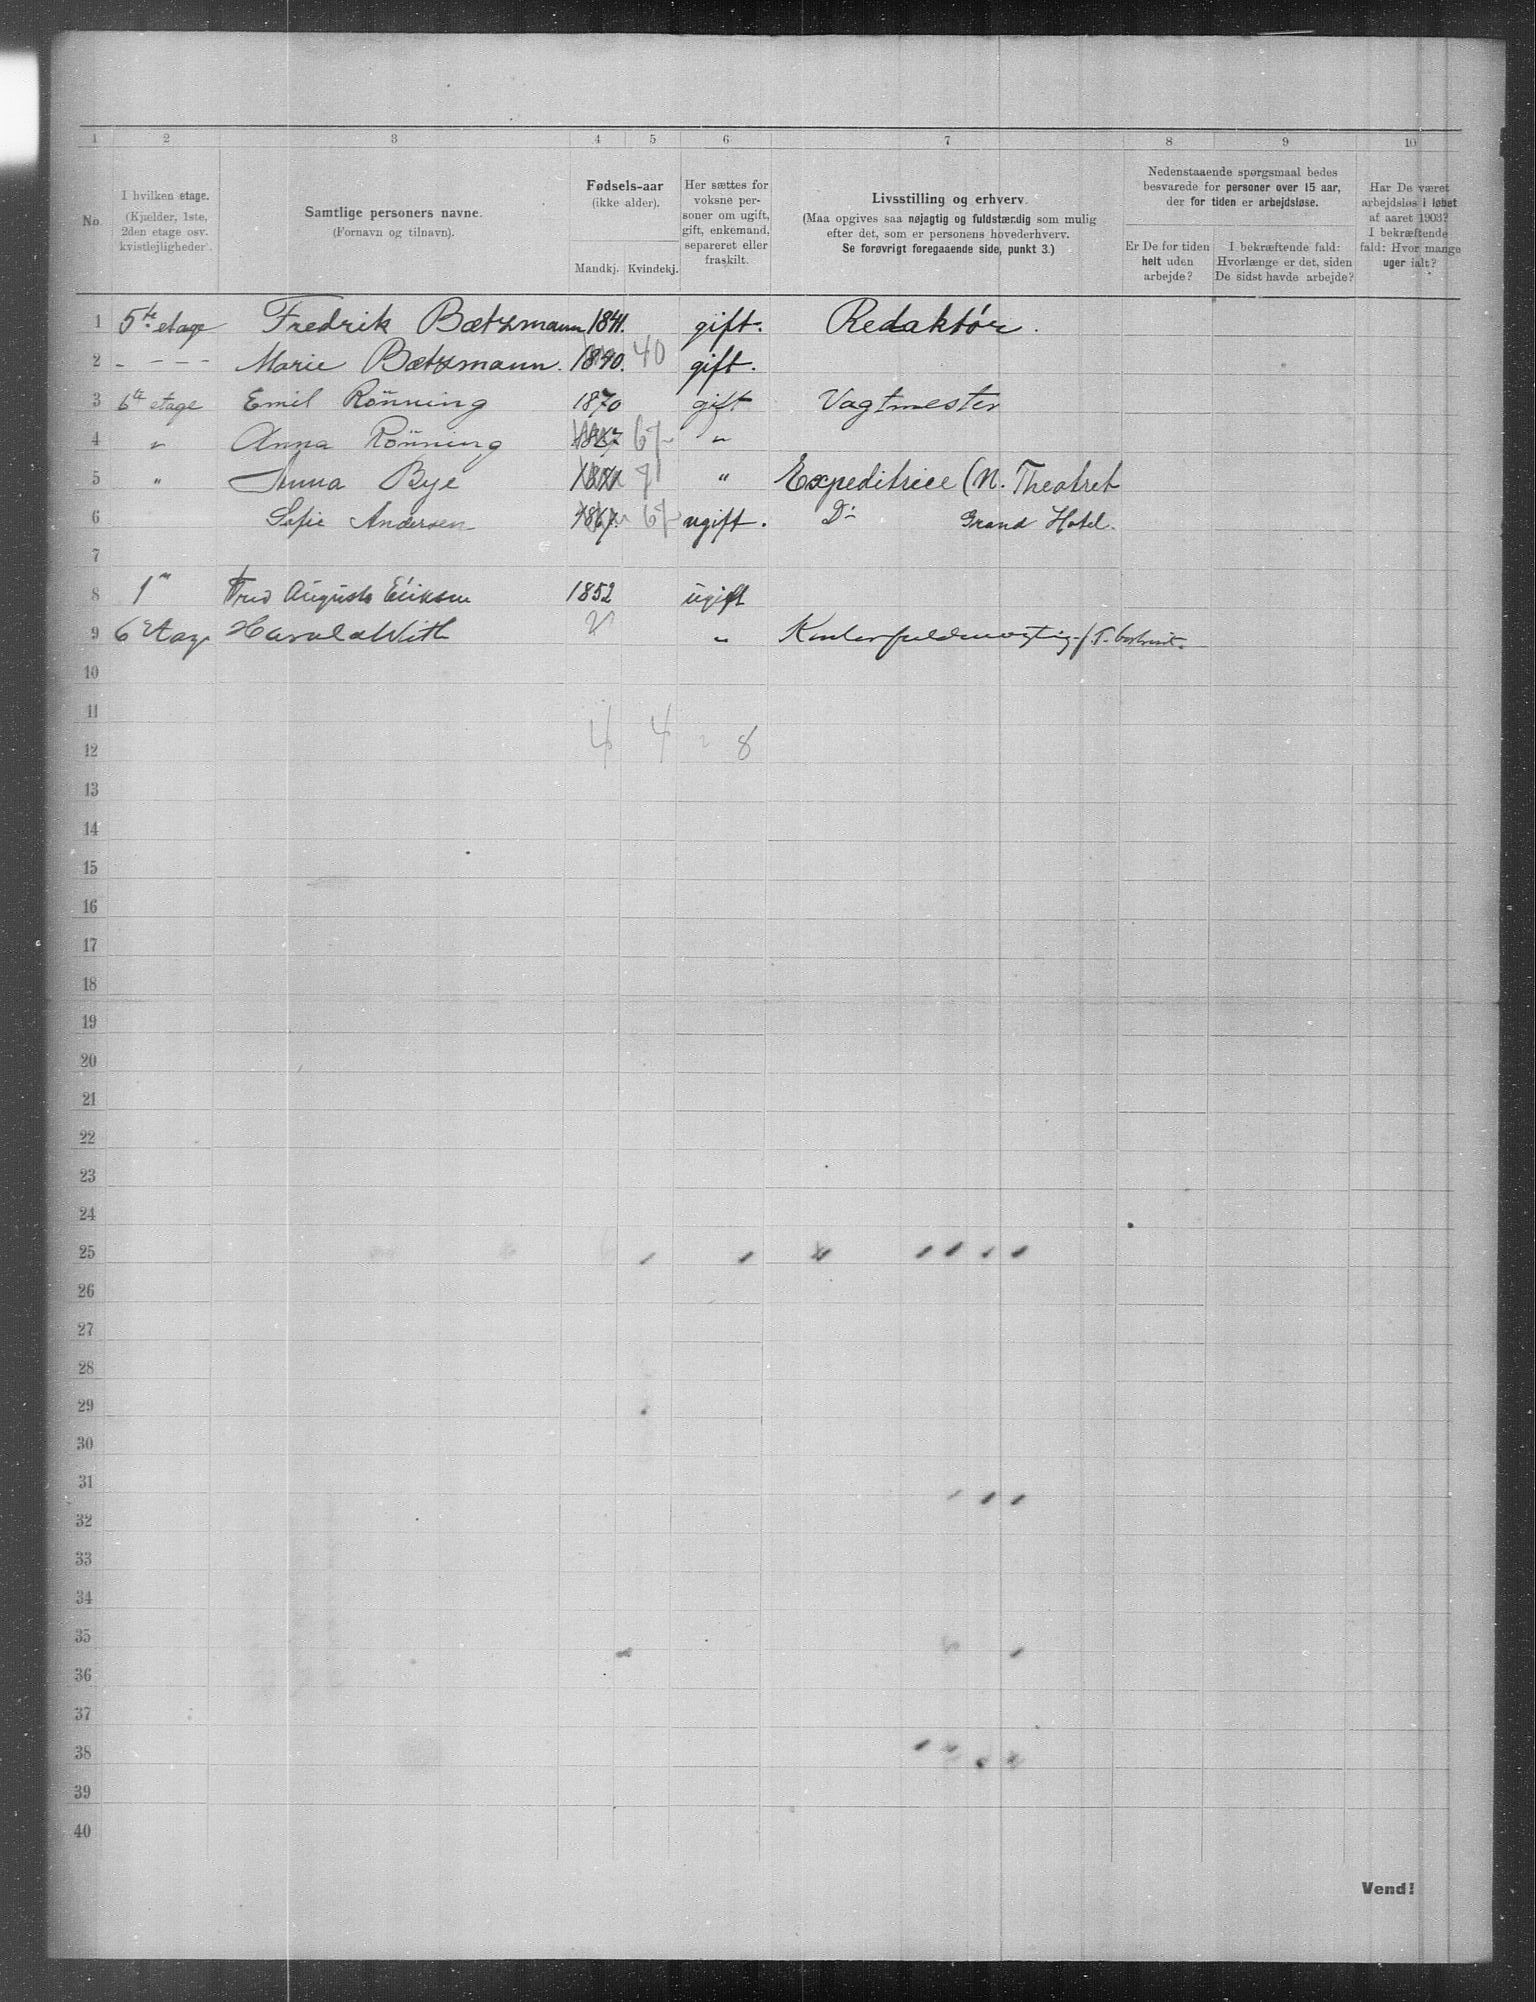 1 2 3 4 5 6 7 8 9 10
No.
I hvilken etage.
(Kjælder, 1ste,
2den etage osv.
kvistlejligheder).
Samtlige personers navne.
(Fornavn og tilnavn).
Fødsels-aar
(ikke alder).
Mandkj. Kvindekj.
Her sættes for
voksne per-
soner om ugift,
gift, enkemand,
separeret eller
fraskilt.
Livsstilling og erhverv.
(Maa opgives saa nøjagtig og fuldstændig som mulig
efter det, som er personens hovederhverv.
Se forøvrigt foregaaende side, punkt 3.)
Nedenstaaende spørgsmaal bedes
besvarede for personer over 15 aar,
der for tiden er arbejdsløse.
Er De for tiden
helt uden
arbejde?
I bekræftende fald:
Hvorlænge er det, siden
De sidst havde arbejde?
Har De været
arbejdsløs i løbet
af aaret 1903?
I bekræftende
fald: Hvor mange
uger ialt?
1 5te etage Fredrik Bætzmann 1841. gift. Redaktør.
2 - - - - Marie Bætzmann. 1840. 40 gift.
3 6te etage Emil Rönning 1870 gift Vagtmester
4 " Anna Rönning 67 "
5 " Anna Bye 71 " Expeditrice (N. Theatret
6 Sofie Andersen 67 ugift. Do Grand Hotel.
7
8 1ste August Eriksen 1852 ugift
9 6 Etage Harald With " T.
10
11
12 4 4 8
13
14
15
16
17
18
19
20
21
22
23
24
25
26
27
28
29
30
31
32
33
34
35
36
37
38
39
40
Vend!